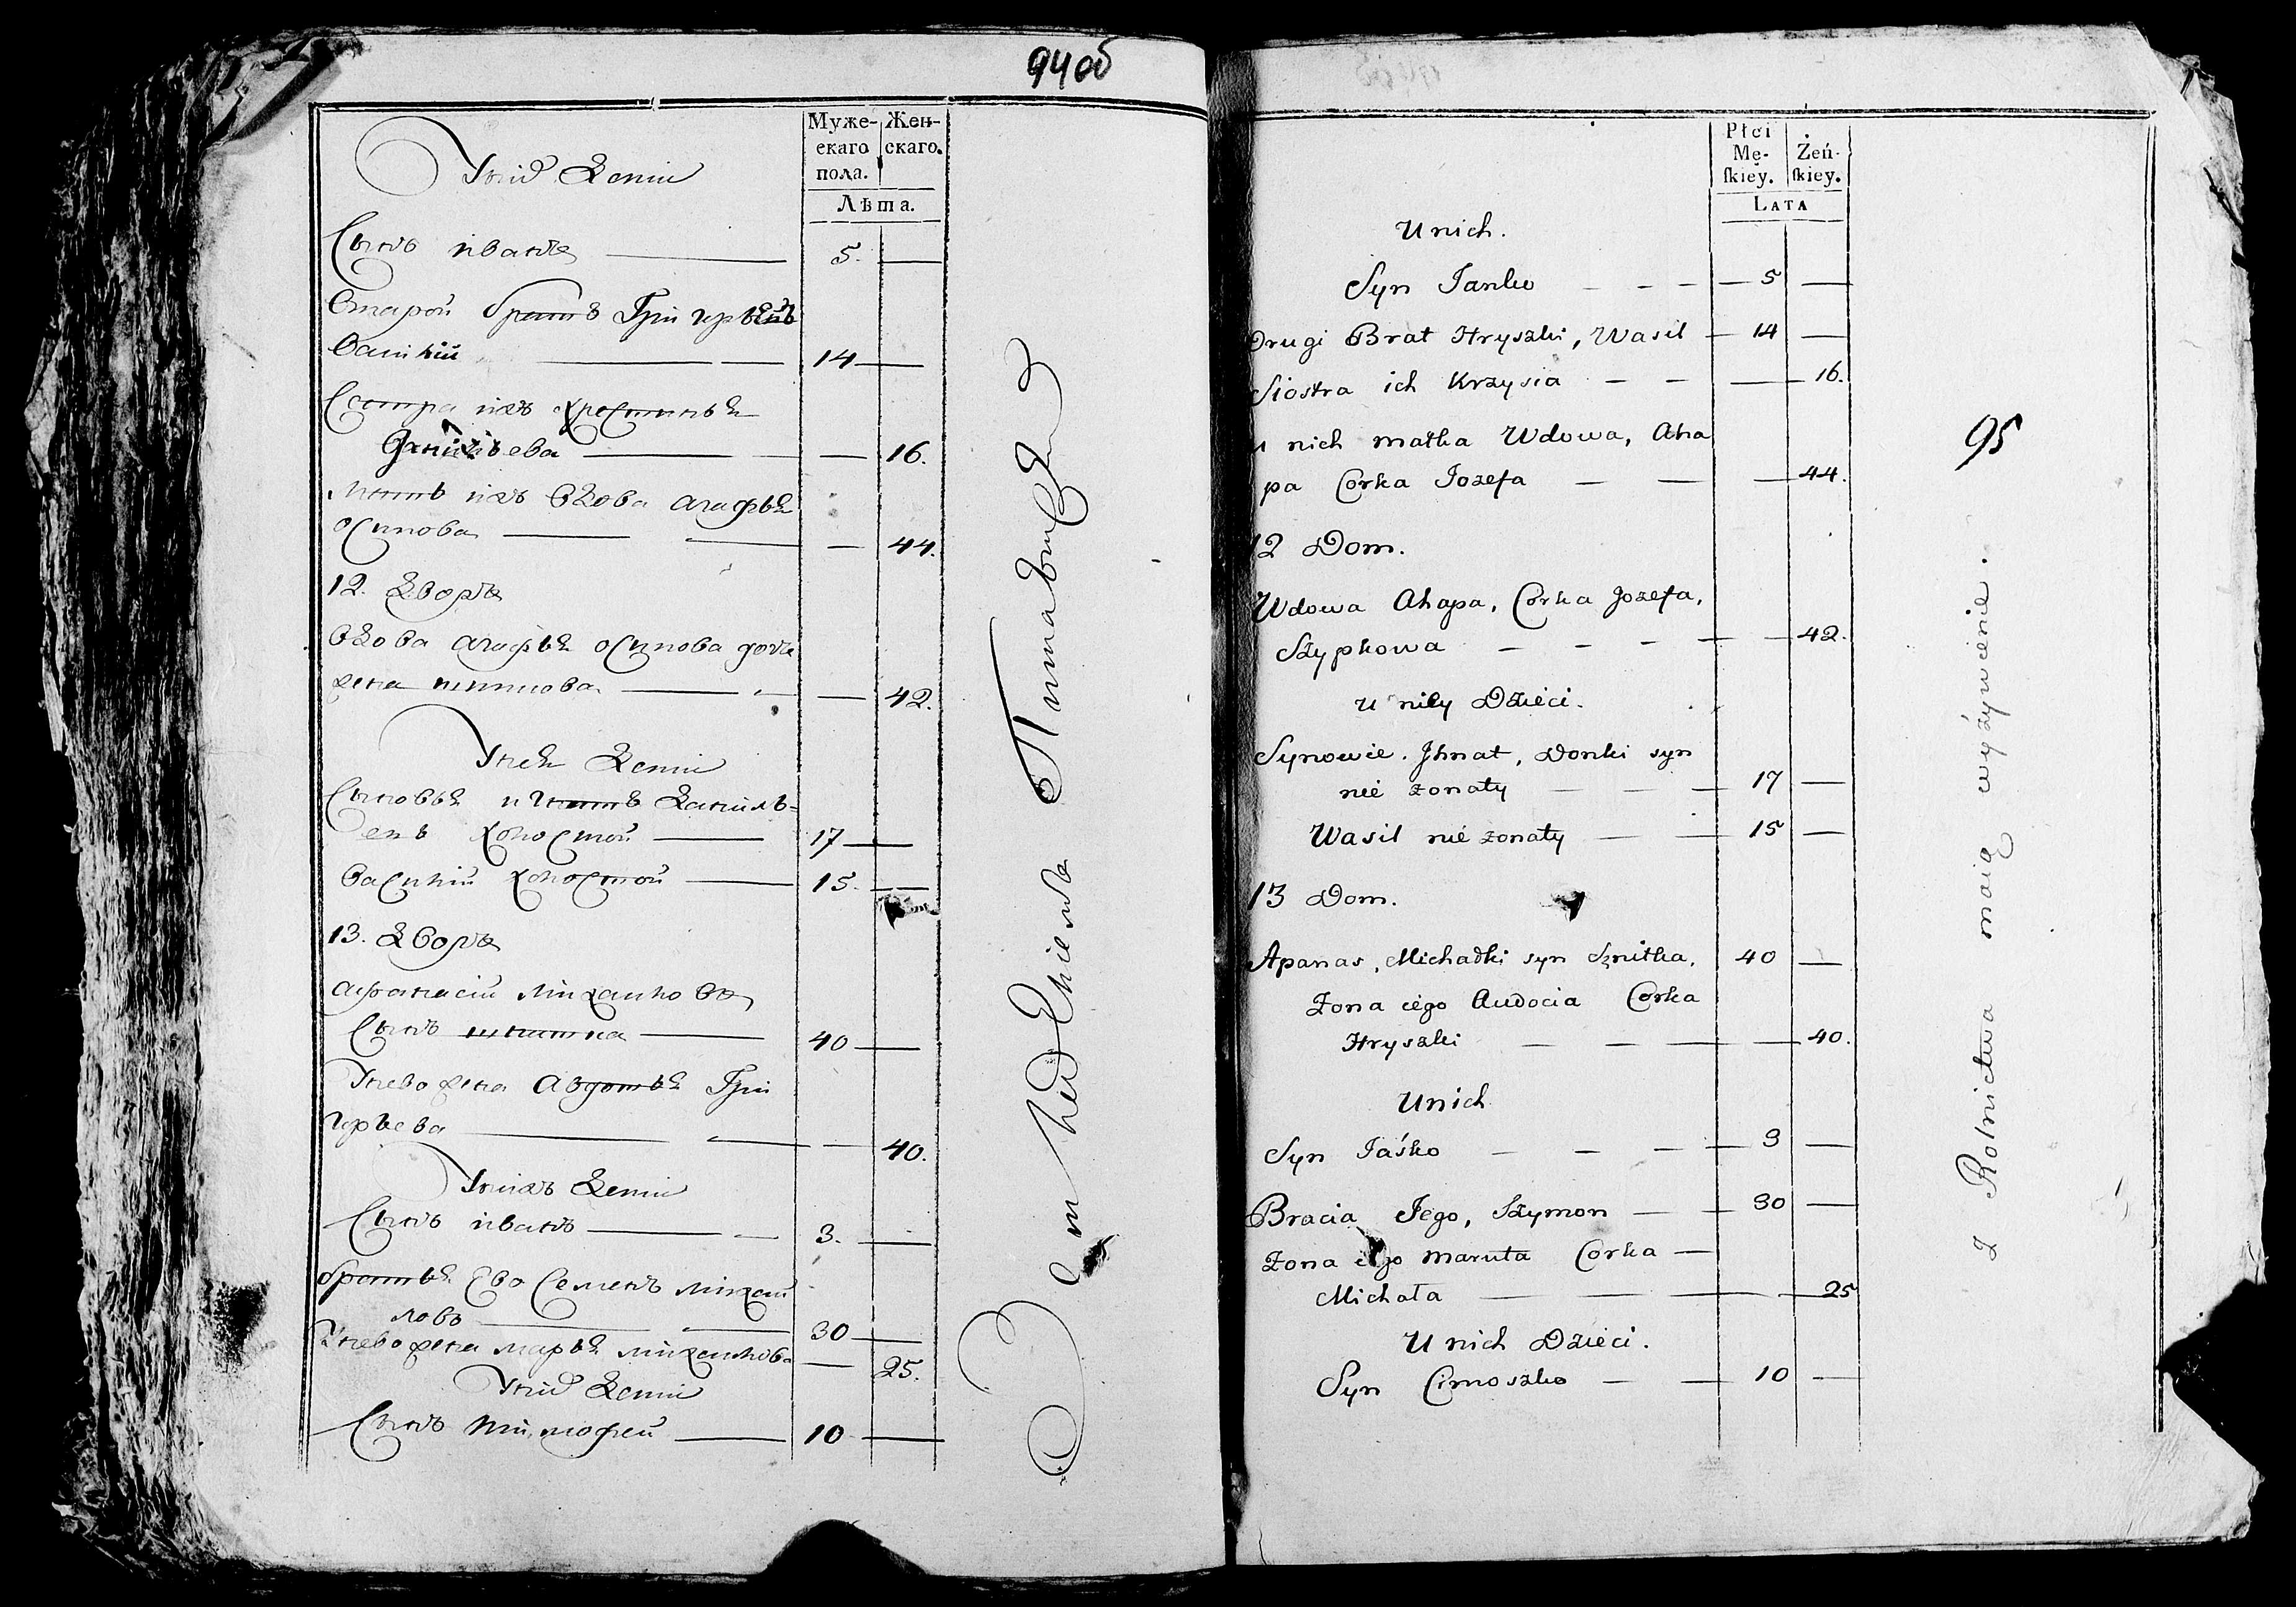 94об
Муже- Жен-
скаго скаго.
пола.
Лѣта.
У них Дети
Сынъ иванъ 5. —
Второй братъ Григорьевъ
Василий 14 —
Сестра ихъ христинья
Данильева — 16.
Мать ихъ вдова агафья
осипова — 44.
12. Дворъ
вдова агафья осипова доч
жена шипкова — 42.
У неи Дети
Сыновья игнатъ данилъ-
евъ холостой 17 —
василий холостой 15. —
13. Дворъ
афанасий михайловъ
Сынъ шнитка 40 —
У него жена авдотья Гри
горьева — 40.
У нихъ Дети
Сынъ иванъ 3. —
братья Ево Семенъ михай
ловъ 30 —
У него жена марья михайлова — 25.
У них Дети
Сынъ тимофей 10 —
От земледелия Питаются
Płci
Mę- Żeń-
skiey. skiey.
LATA
U nich.
Syn Janko — 5 —
Drugi Brat Hryszki, Wasil — 14 —
Siostra ich Krzysia — — 16.
u nich matka Wdowa, Aha
pa Corka Jozefa — — 44.
12 Dom.
Wdowa Ahapa, Corka Jozefa,
Szypkowa — — 42.
u niey Dzieci.
Synowie. Ihnat, Donki syn
nie żonaty — 17 —
Wasil nie żonaty — 15 —
13 Dom.
Apanas, Michałki syn Sznitka, 40 —
Żona iego Audocia Corka
Hryszki — — 40.
U nich
Syn Jaśko — 3 —
Bracia Jego, Szymon — 30 —
Żona iego Maruta Corka —
Michała — 25
U nich Dzieci.
Syn Cimoszko — 10 —
95
z Rolnictwa maią wyżywienie.